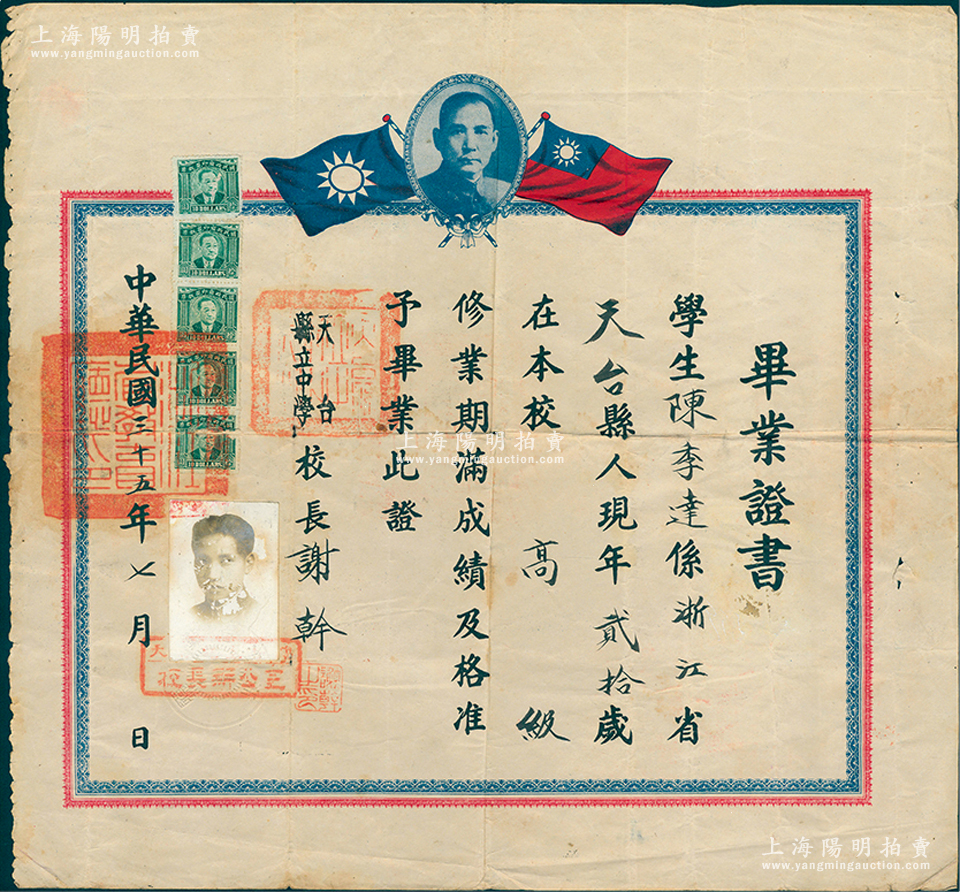 上海陽明拍賣
www.yangmingauction.com
畢業證書
學生陳季達係浙江省
天台縣人現年貳拾歲
在本校高級
修業期滿成績及格准
予畢業此證
天台
縣立中學校長謝幹
中華民國三十五年七月 日
10 DOLLARS
10 DOLLARS
10 DOLLARS
10 DOLLARS
10 DOLLARS
上海陽明拍賣
www.yangmingauction.com
上海陽明拍賣
www.yangmingauction.com